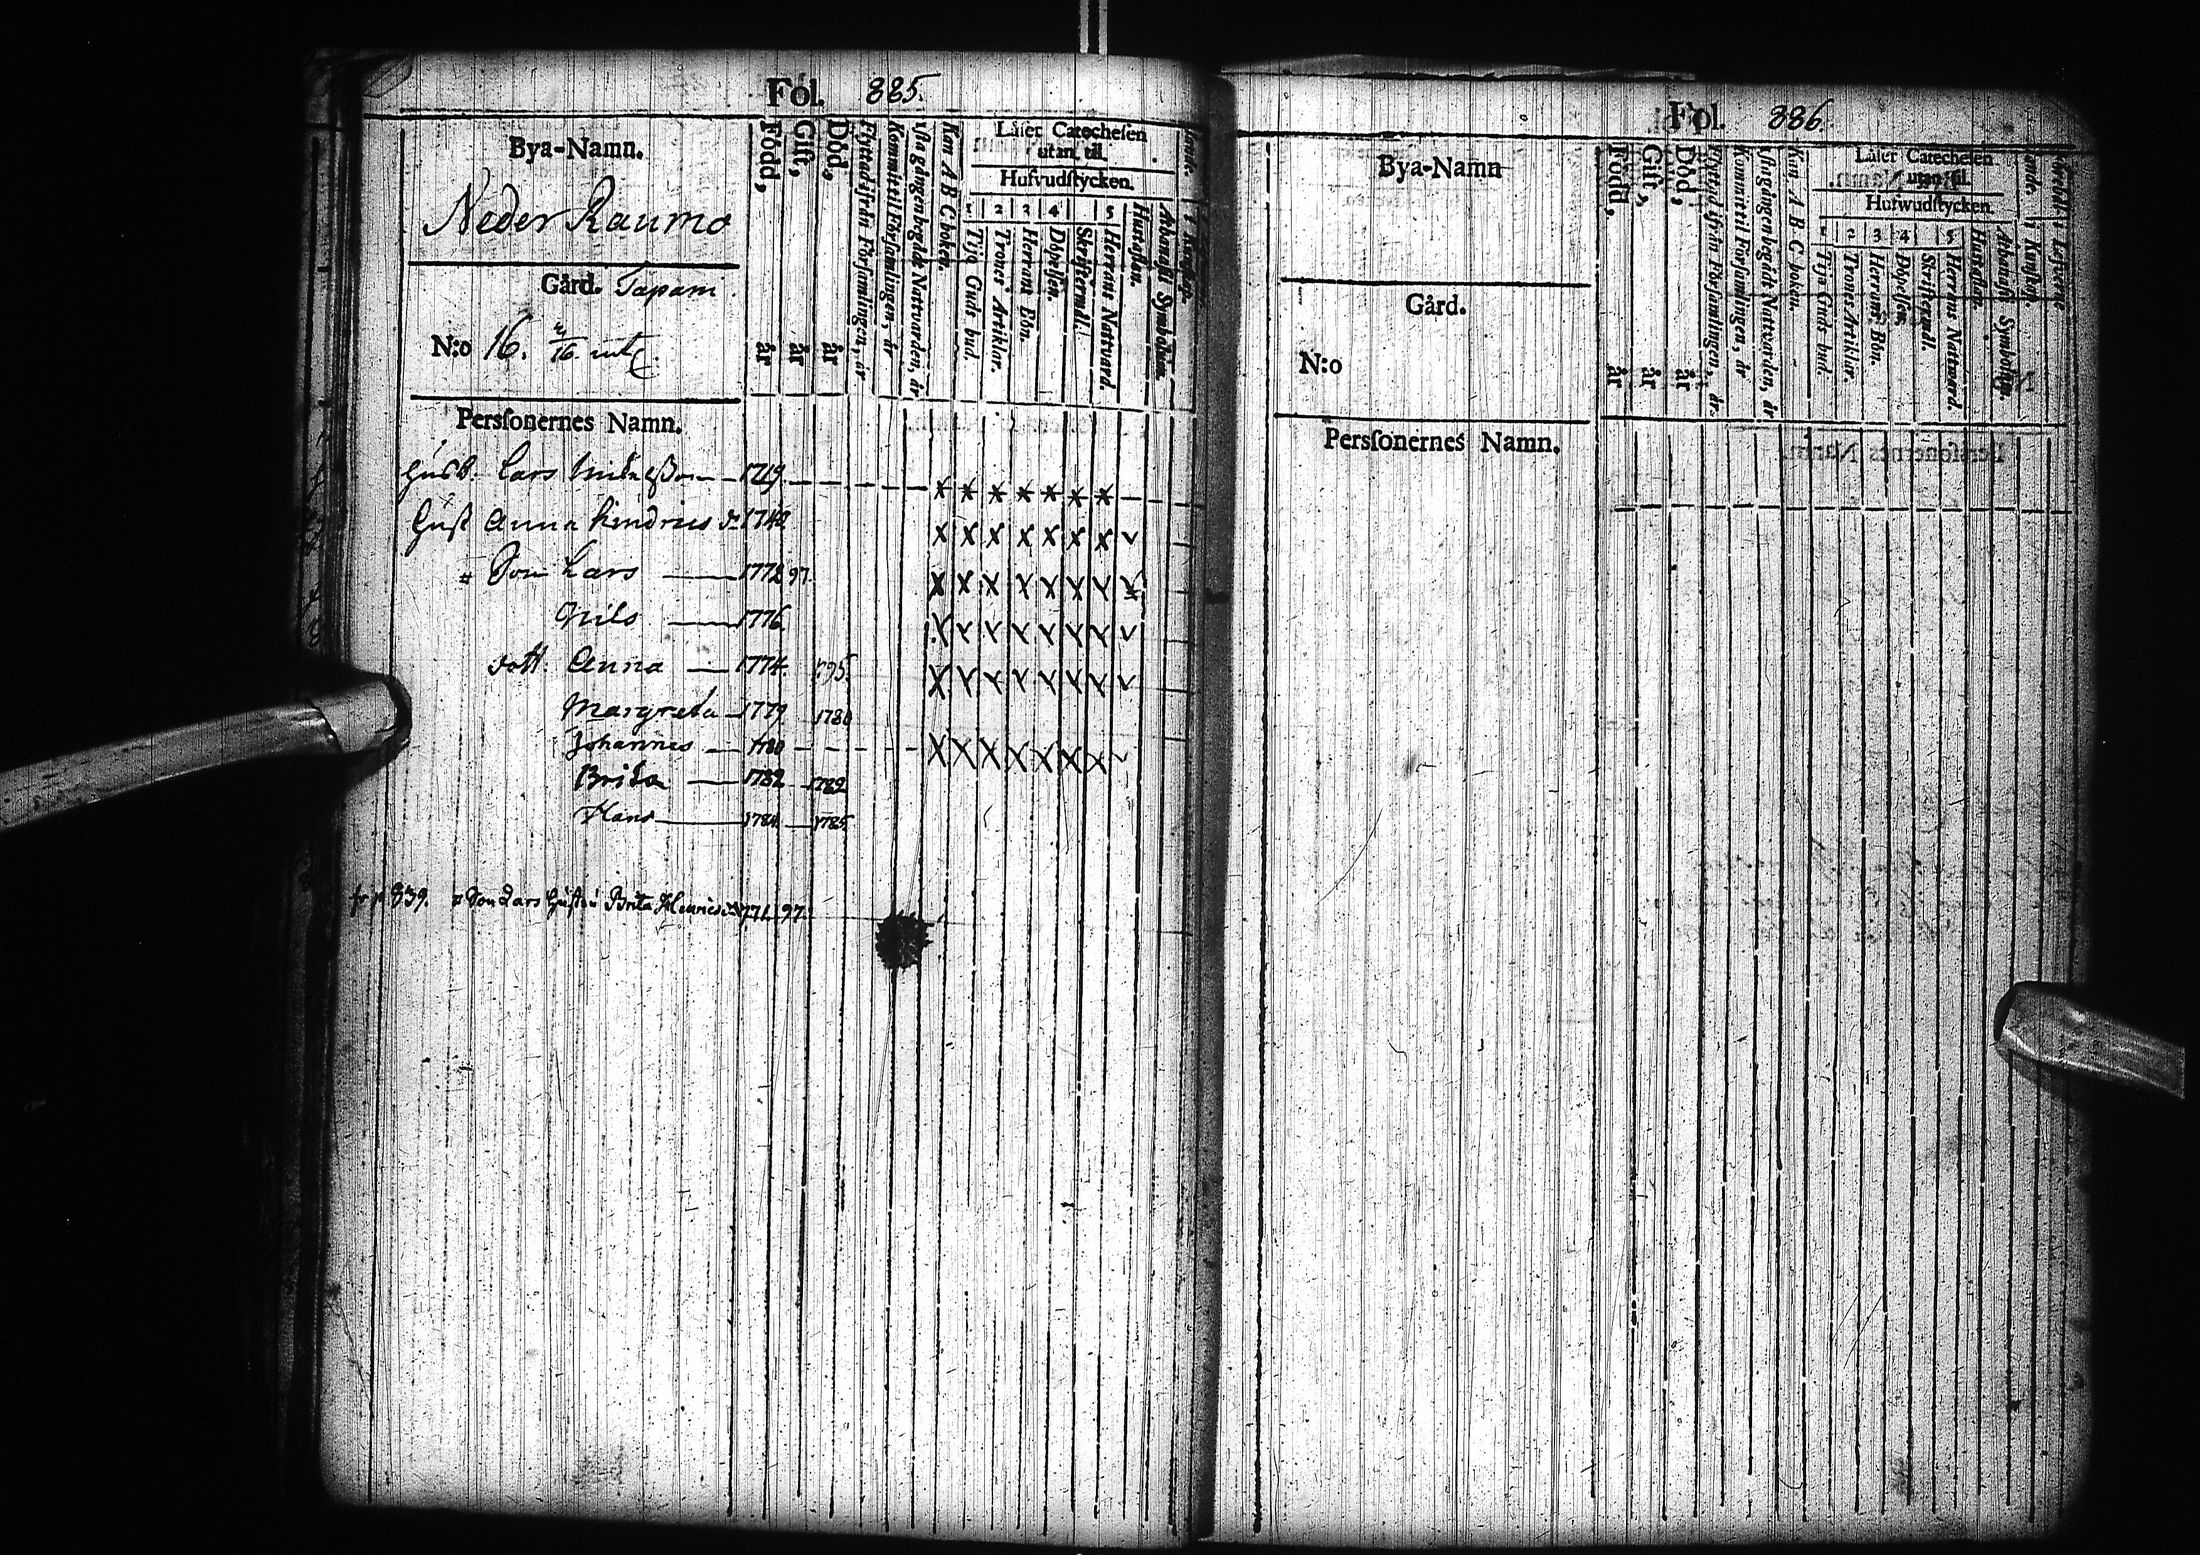 Fol. 885.
Bya-Namn.
Neder Raumo
Gård. Tapani
N:o 16.
Född, år
Gift, år
Död, år
Flyttad ifrån Församlingen, år
Kommit til Församlingen, år
1sta gången begådt Nattvarden, år
Kan A B C boken.
Läser Catechesen
utan til.
Hufvudstycken.
1 2 3 4 5
Tijo Guds bud.
Trones Artiklar.
Herrans Bön.
Döpelsen.
Skriftermål.
Herrans Nattvard.
Hustaflan.
Athanasii Symbolum.
Persſonernes Namn.
Lars 1719
Hust Anna Hendrics d. 1740
Son Lars 1772 97
Nils 1776
dott. Anna 1774. 1795.
Margreta 1779 1780
Johannes 1780
Brita 1782 1782
Hans 1784 1785
fr p 839. Son Lars Hust Brita Henricsd. 1771 97.
Fol. 886
Bya-Namn
Gård.
N:o
Född, år
Gift, år
Död, år
Flyttad ifrån Församlingen, år
Kommit til Församlingen, år
1sta gången begådt Nattvarden, år
Kan A B C boken.
Läser Catechesen
utan til.
Hufwudstycken.
1 2 3 4 5
Tijo Guds bud.
Trones Artiklar.
Herrans Bön.
Döpelsen.
Skriftermål.
Herrans Nattvard.
Hustaflan.
Athanasii Symbolum.
Persſonernes Namn.